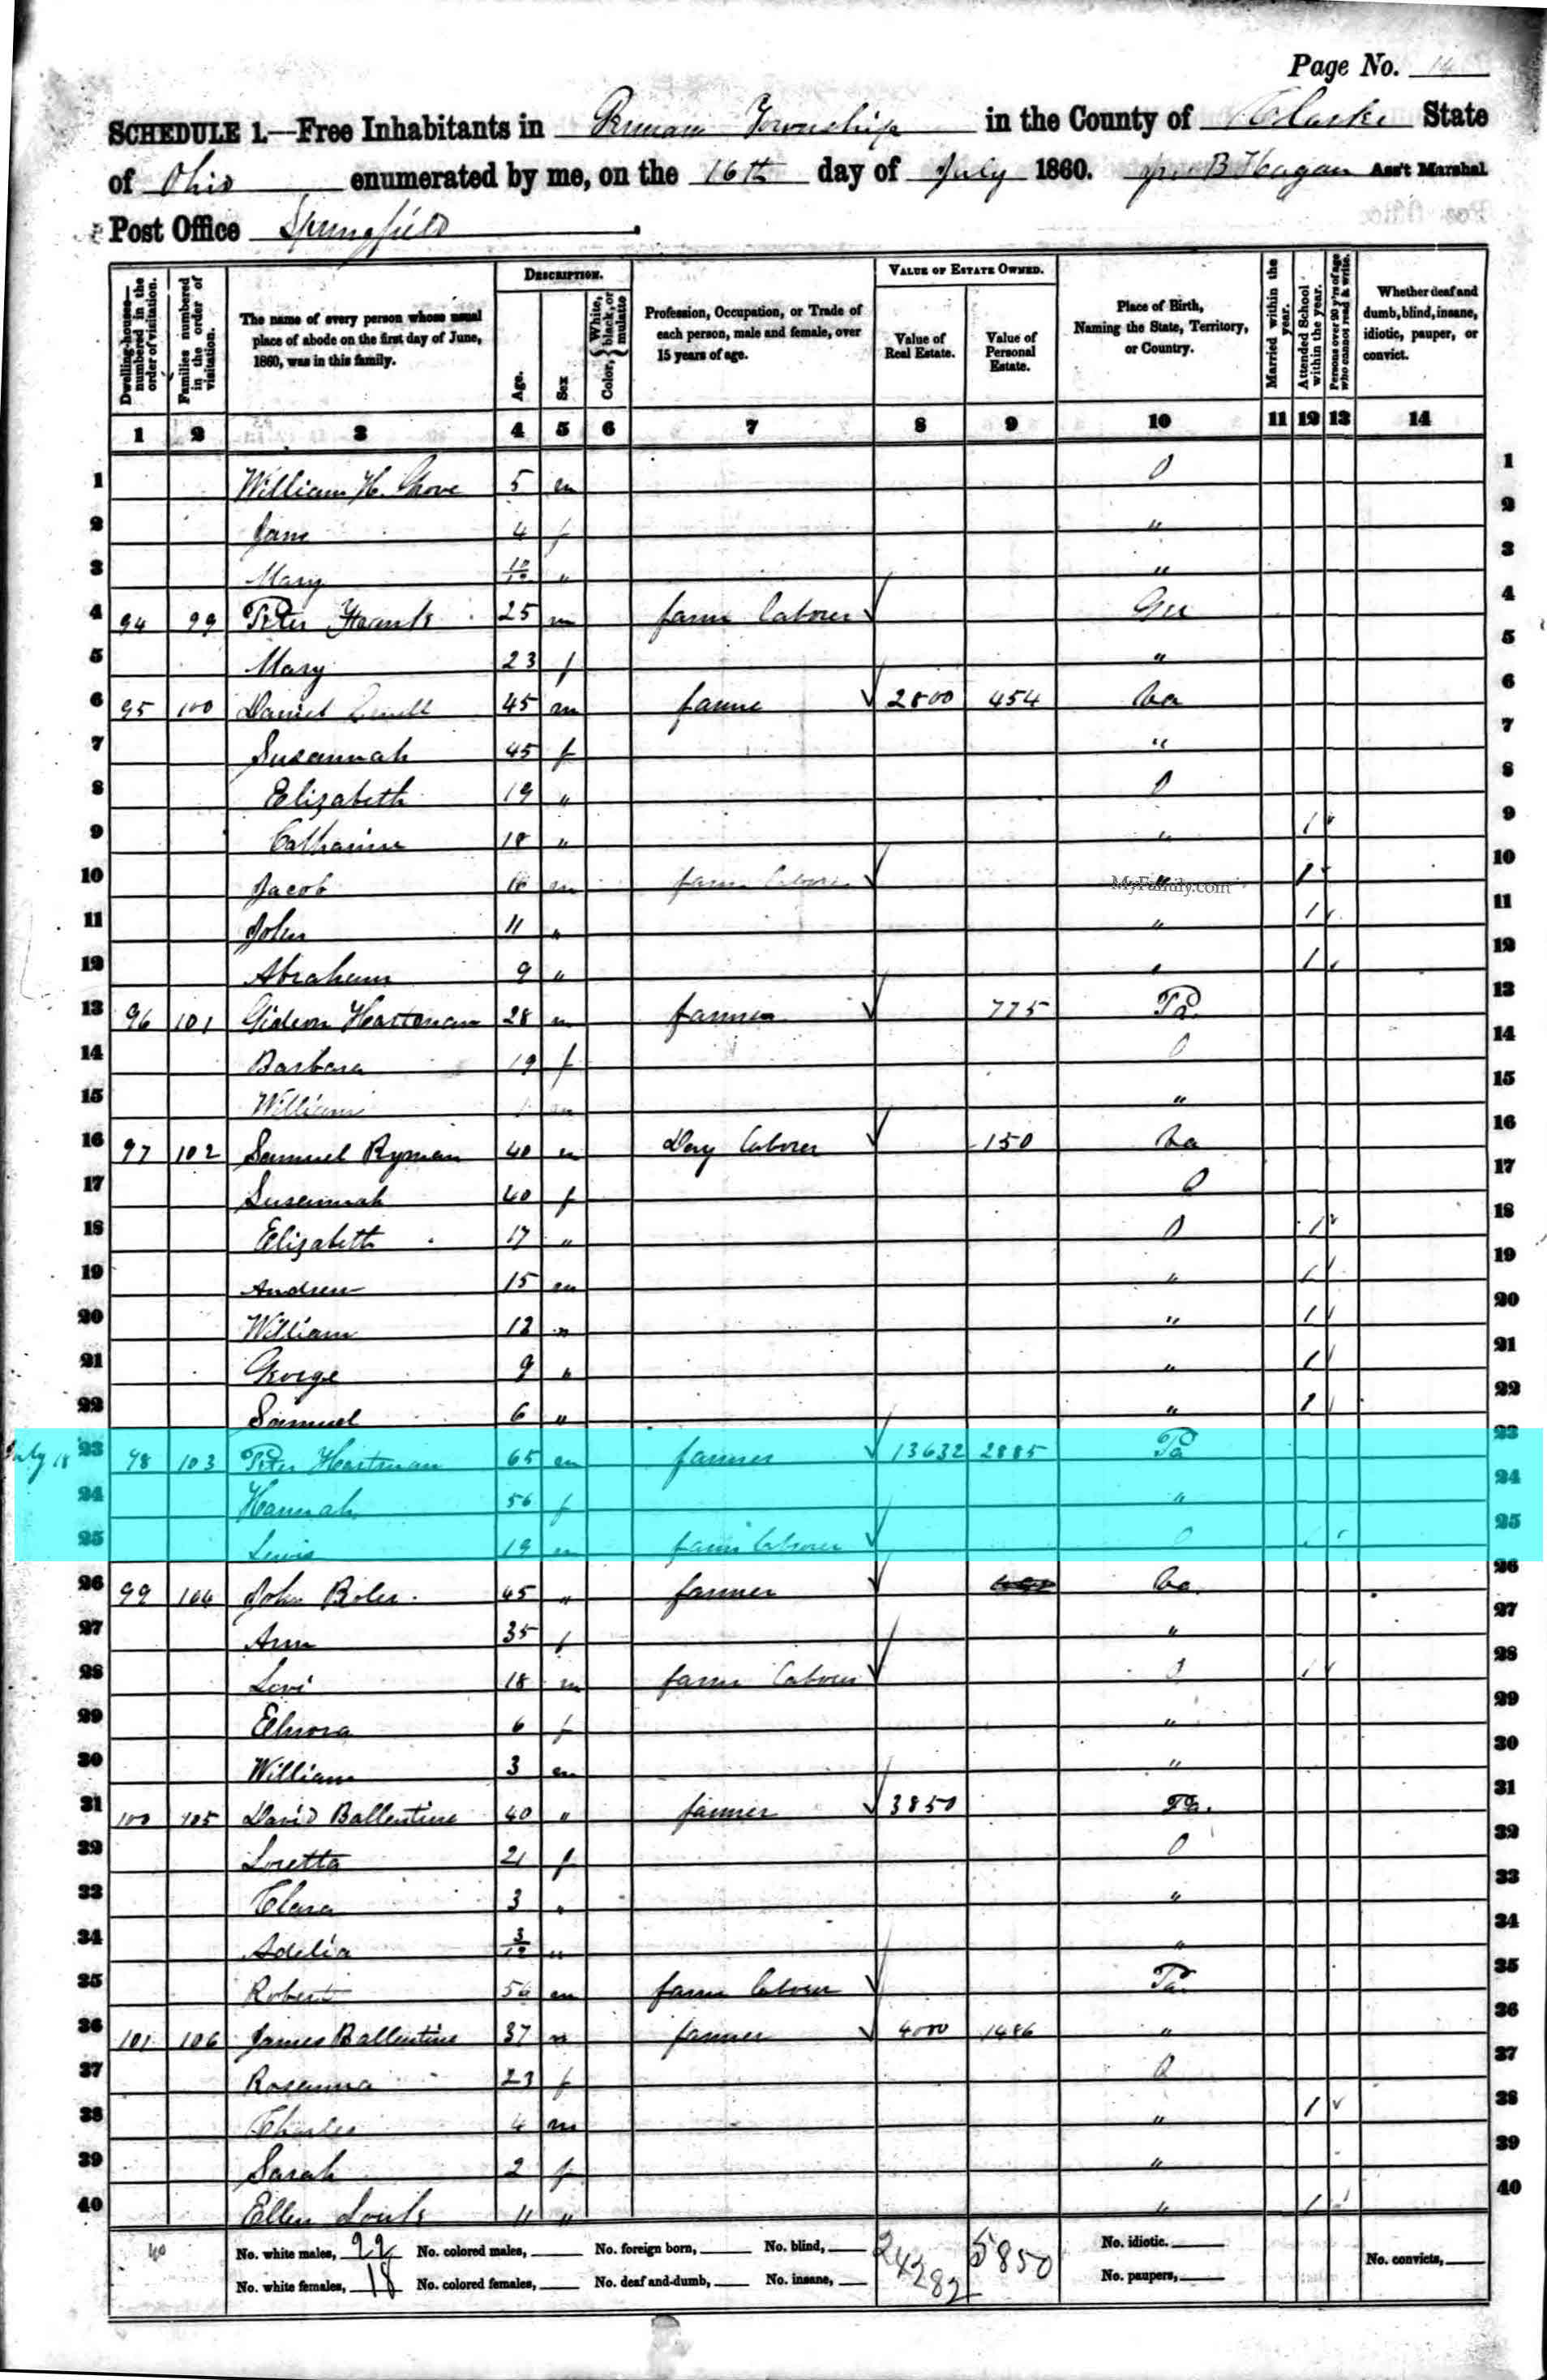 Page No. 14
SCHEDULE 1.—Free Inhabitants in German Township in the County of Clarke State
of Ohio enumerated by me, on the 16th day of July 1860. B Hagan Ass't Marshal
Post Office Springfield.
Dwelling-houses—numbered in the order of visitation.
Families numbered in the order of visitation.
The name of every person whose usual place of abode on the first day of June, 1860, was in this family.
DESCRIPTION.
Age.
Sex
Color, White, black, or mulatto
Profession, Occupation, or Trade of each person, male and female, over 15 years of age.
VALUE OF ESTATE OWNED.
Value of Real Estate.
Value of Personal Estate.
Place of Birth, Naming the State, Territory, or Country.
Married within the year.
Attended School within the year.
Persons over 20 y'rs of age who cannot read & write.
Whether deaf and dumb, blind, insane, idiotic, pauper, or convict.
1 2 3 4 5 6 7 8 9 10 11 12 13 14
1 William H. Grove 5 m O 1
2 Jane 4 f " 2
3 Mary 10/12 " " 3
4 94 99 Peter Frank 25 m farm laborer Ger 4
5 Mary 23 f " 5
6 95 100 Daniel 45 m farmer 2800 454 Va 6
7 Susannah 45 f " 7
8 Elizabeth 19 " O 8
9 Catharine 18 " " 1 9
10 Jacob 16 m farm laborer " 1 10
MyFamily.com
11 John 11 " " 1 11
12 Abraham 9 " " 1 12
13 96 101 Gideon Hartman 28 m farmer 775 Pa. 13
14 Barbara 19 f O 14
15 William 1 m " 15
16 97 102 Samuel Ryman 40 m Day laborer 150 Va 16
17 Susannah 40 f O 17
18 Elizabeth 17 " O 1 18
19 Andrew 15 m " 1 19
20 William 12 " " 1 20
21 George 9 " " 1 21
22 Samuel 6 " " 1 22
July 18 23 98 103 Peter Hartman 65 m farmer 13632 2885 Pa 23
24 Hannah 56 f " 24
25 Lewis 19 m farm laborer O 1 25
26 99 104 John Boler 45 " farmer Va. 26
27 Ann 35 f " 27
28 Levi 18 m farm laborer O 1 28
29 Elnora 6 f " 29
30 William 3 m " 30
31 100 105 David Ballentine 40 " farmer 3850 Pa. 31
32 Loretta 21 f O 32
33 Clara 3 " " 33
34 Adelia 3/12 " " 34
35 Robert 54 m farm laborer Pa. 35
36 101 106 James Ballentine 37 m farmer 4000 1486 " 36
37 Rosanna 23 f O 37
38 Charles 4 m " 1 38
39 Sarah 2 f " 39
40 Ellen 11 " " 1 40
40 No. white males, 22 No. colored males, No. foreign born, No. blind, 24282 5850 No. idiotic. No. convicts,
No. white females, 18 No. colored females, No. deaf and-dumb, No. insane, No. paupers,